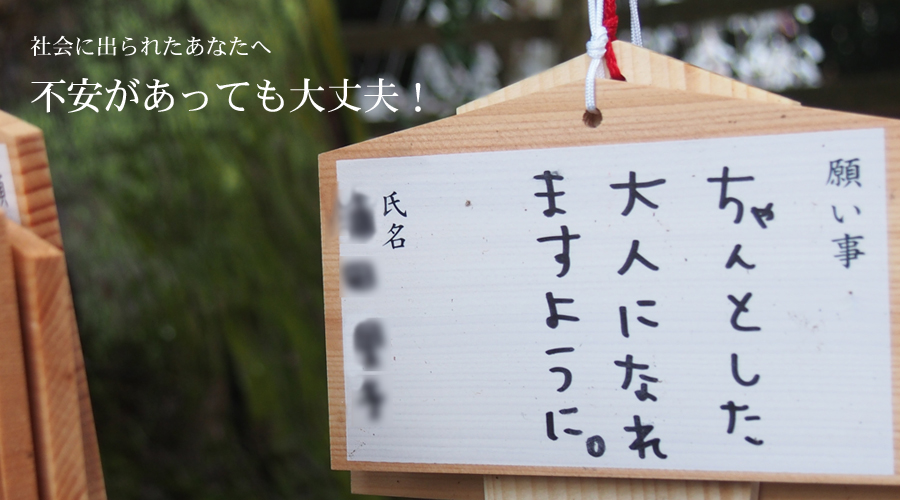 社会に出られたあなたへ
不安があっても大丈夫！
願い事
ちゃんとした
大人になれ
ますように。
氏名